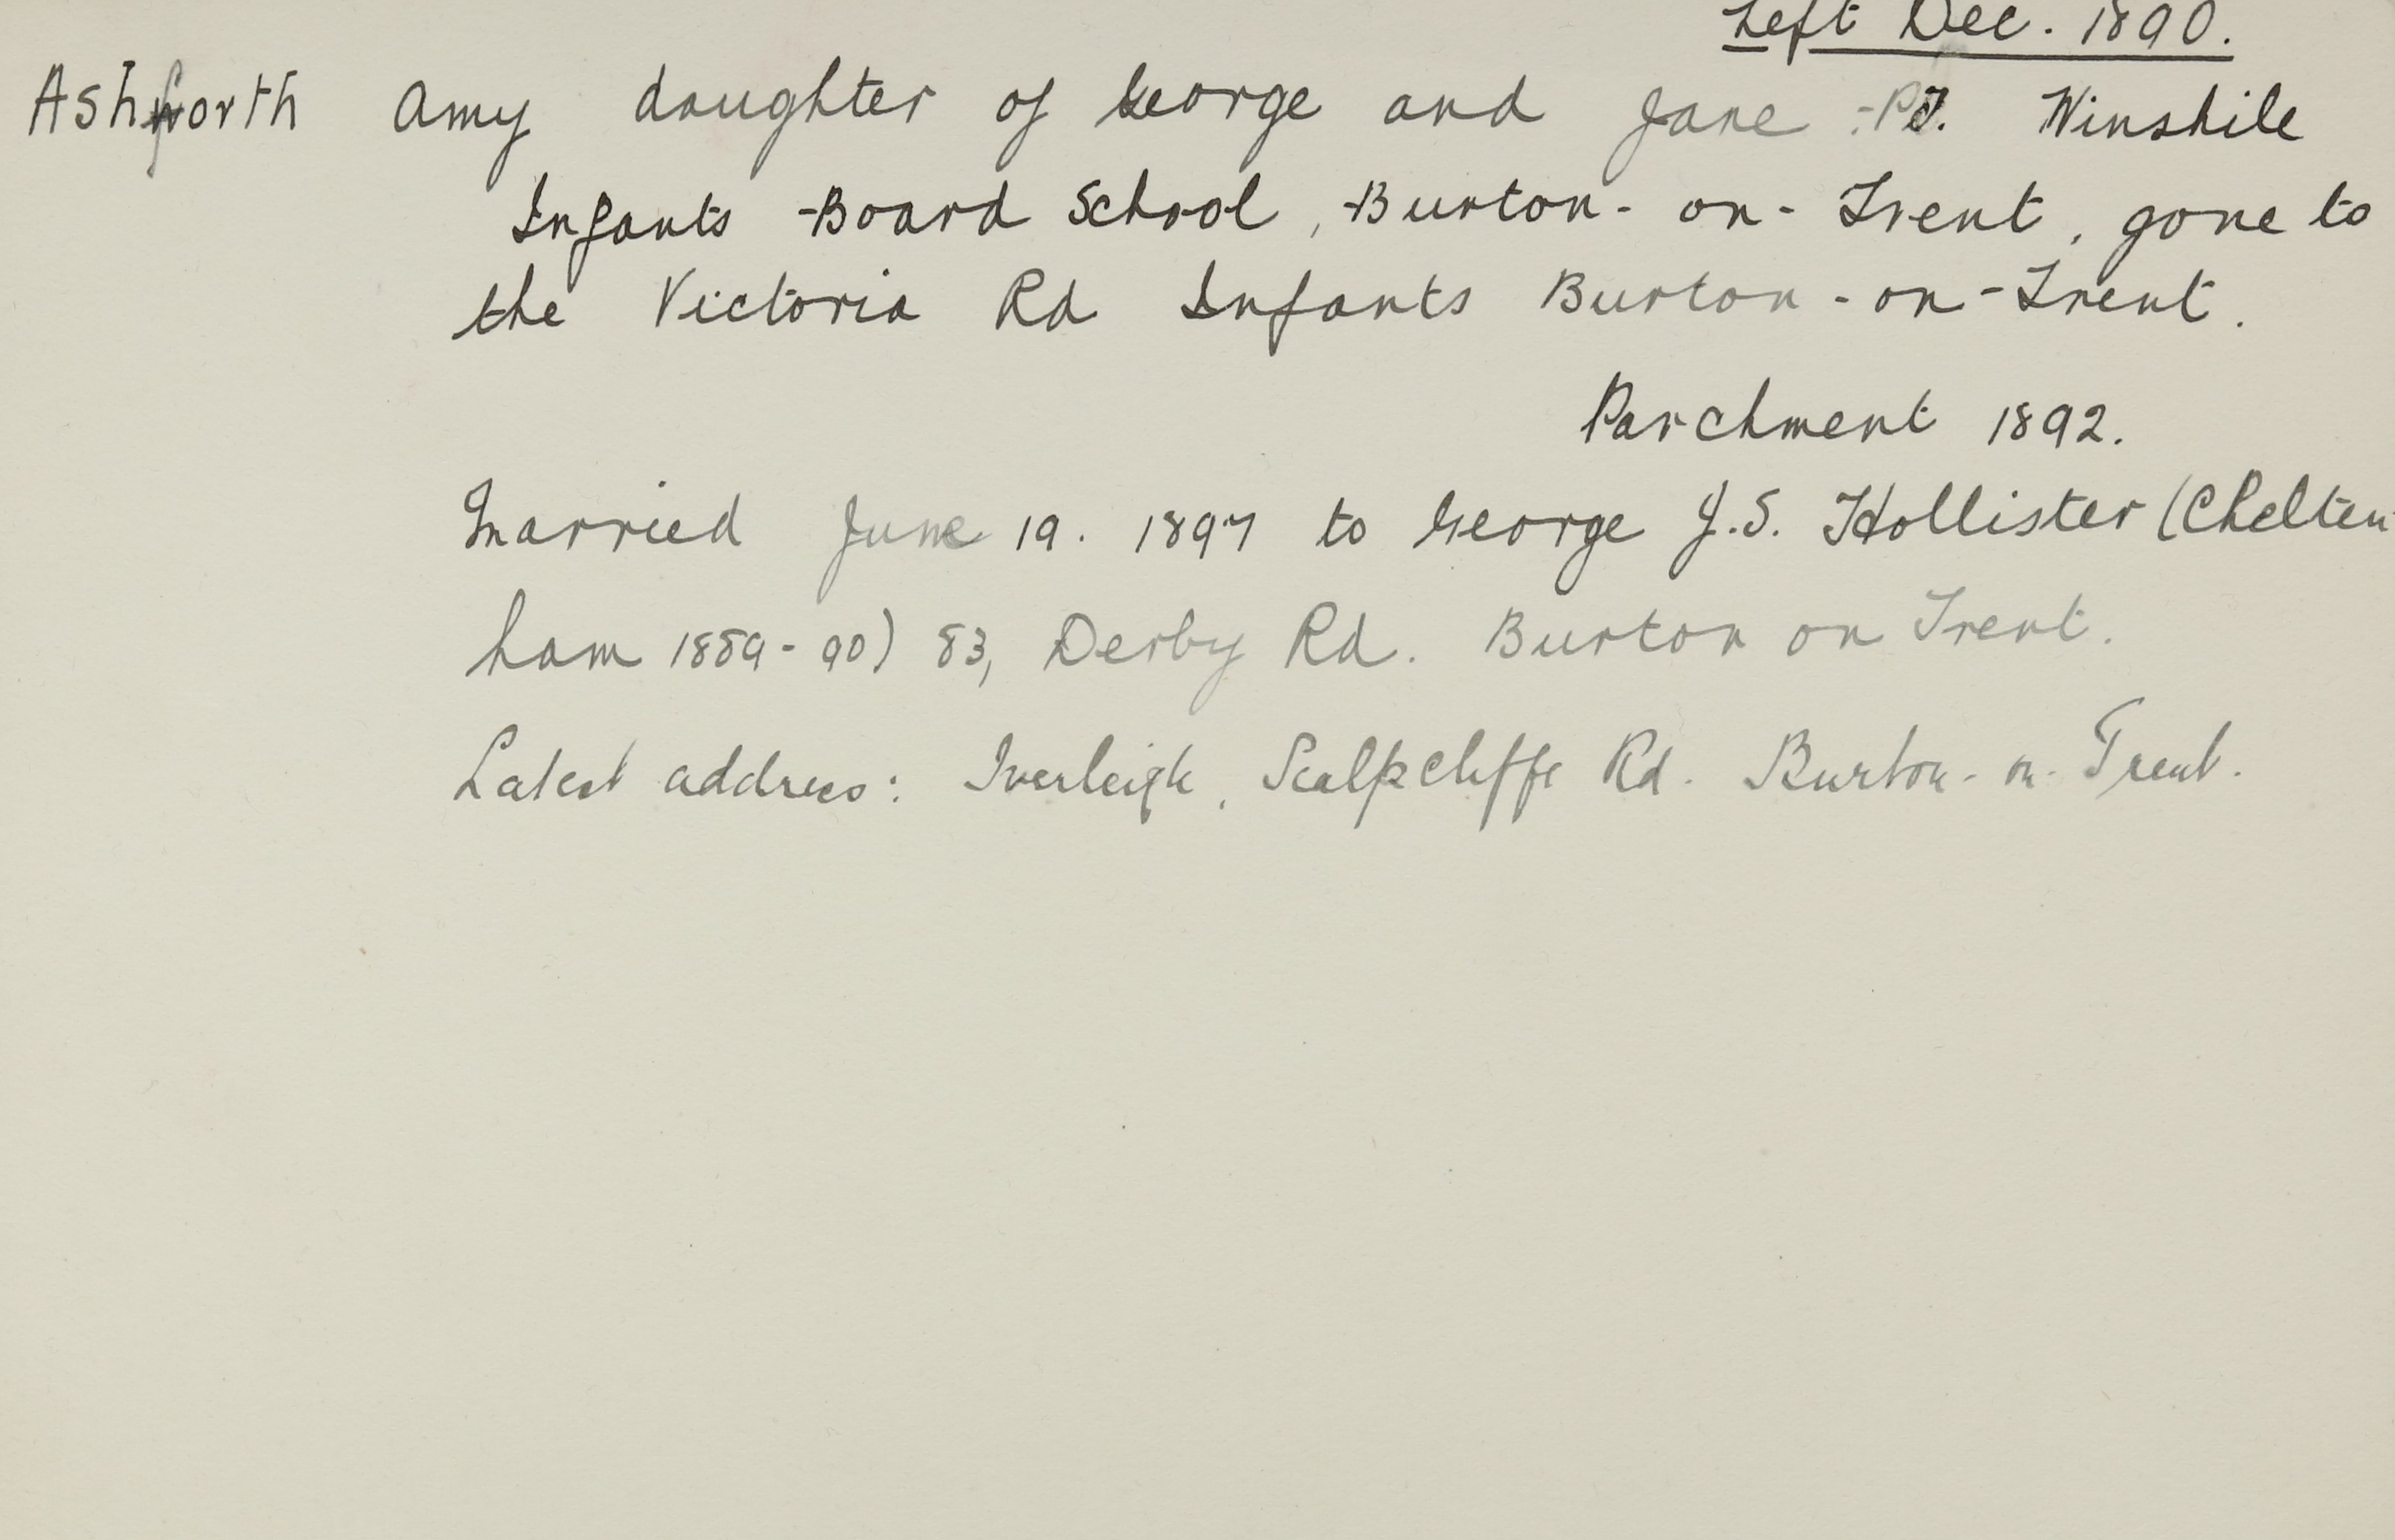 Left Dec. 1890.
Ashforth Amy daughter of George and Jane :- P.T. Winshile
Infants Board School, Burton-on-Trent, gone to
the Victoria Rd Infants Burton-on-Trent.
Parchment 1892.
Married June 19. 1897 to George J.S. Hollister (Chelten-
ham 1889-90) 83, Derby Rd. Burton on Trent.
Latest address: Inverleigh, Scalpcliffe Rd. Burton-on-Trent.